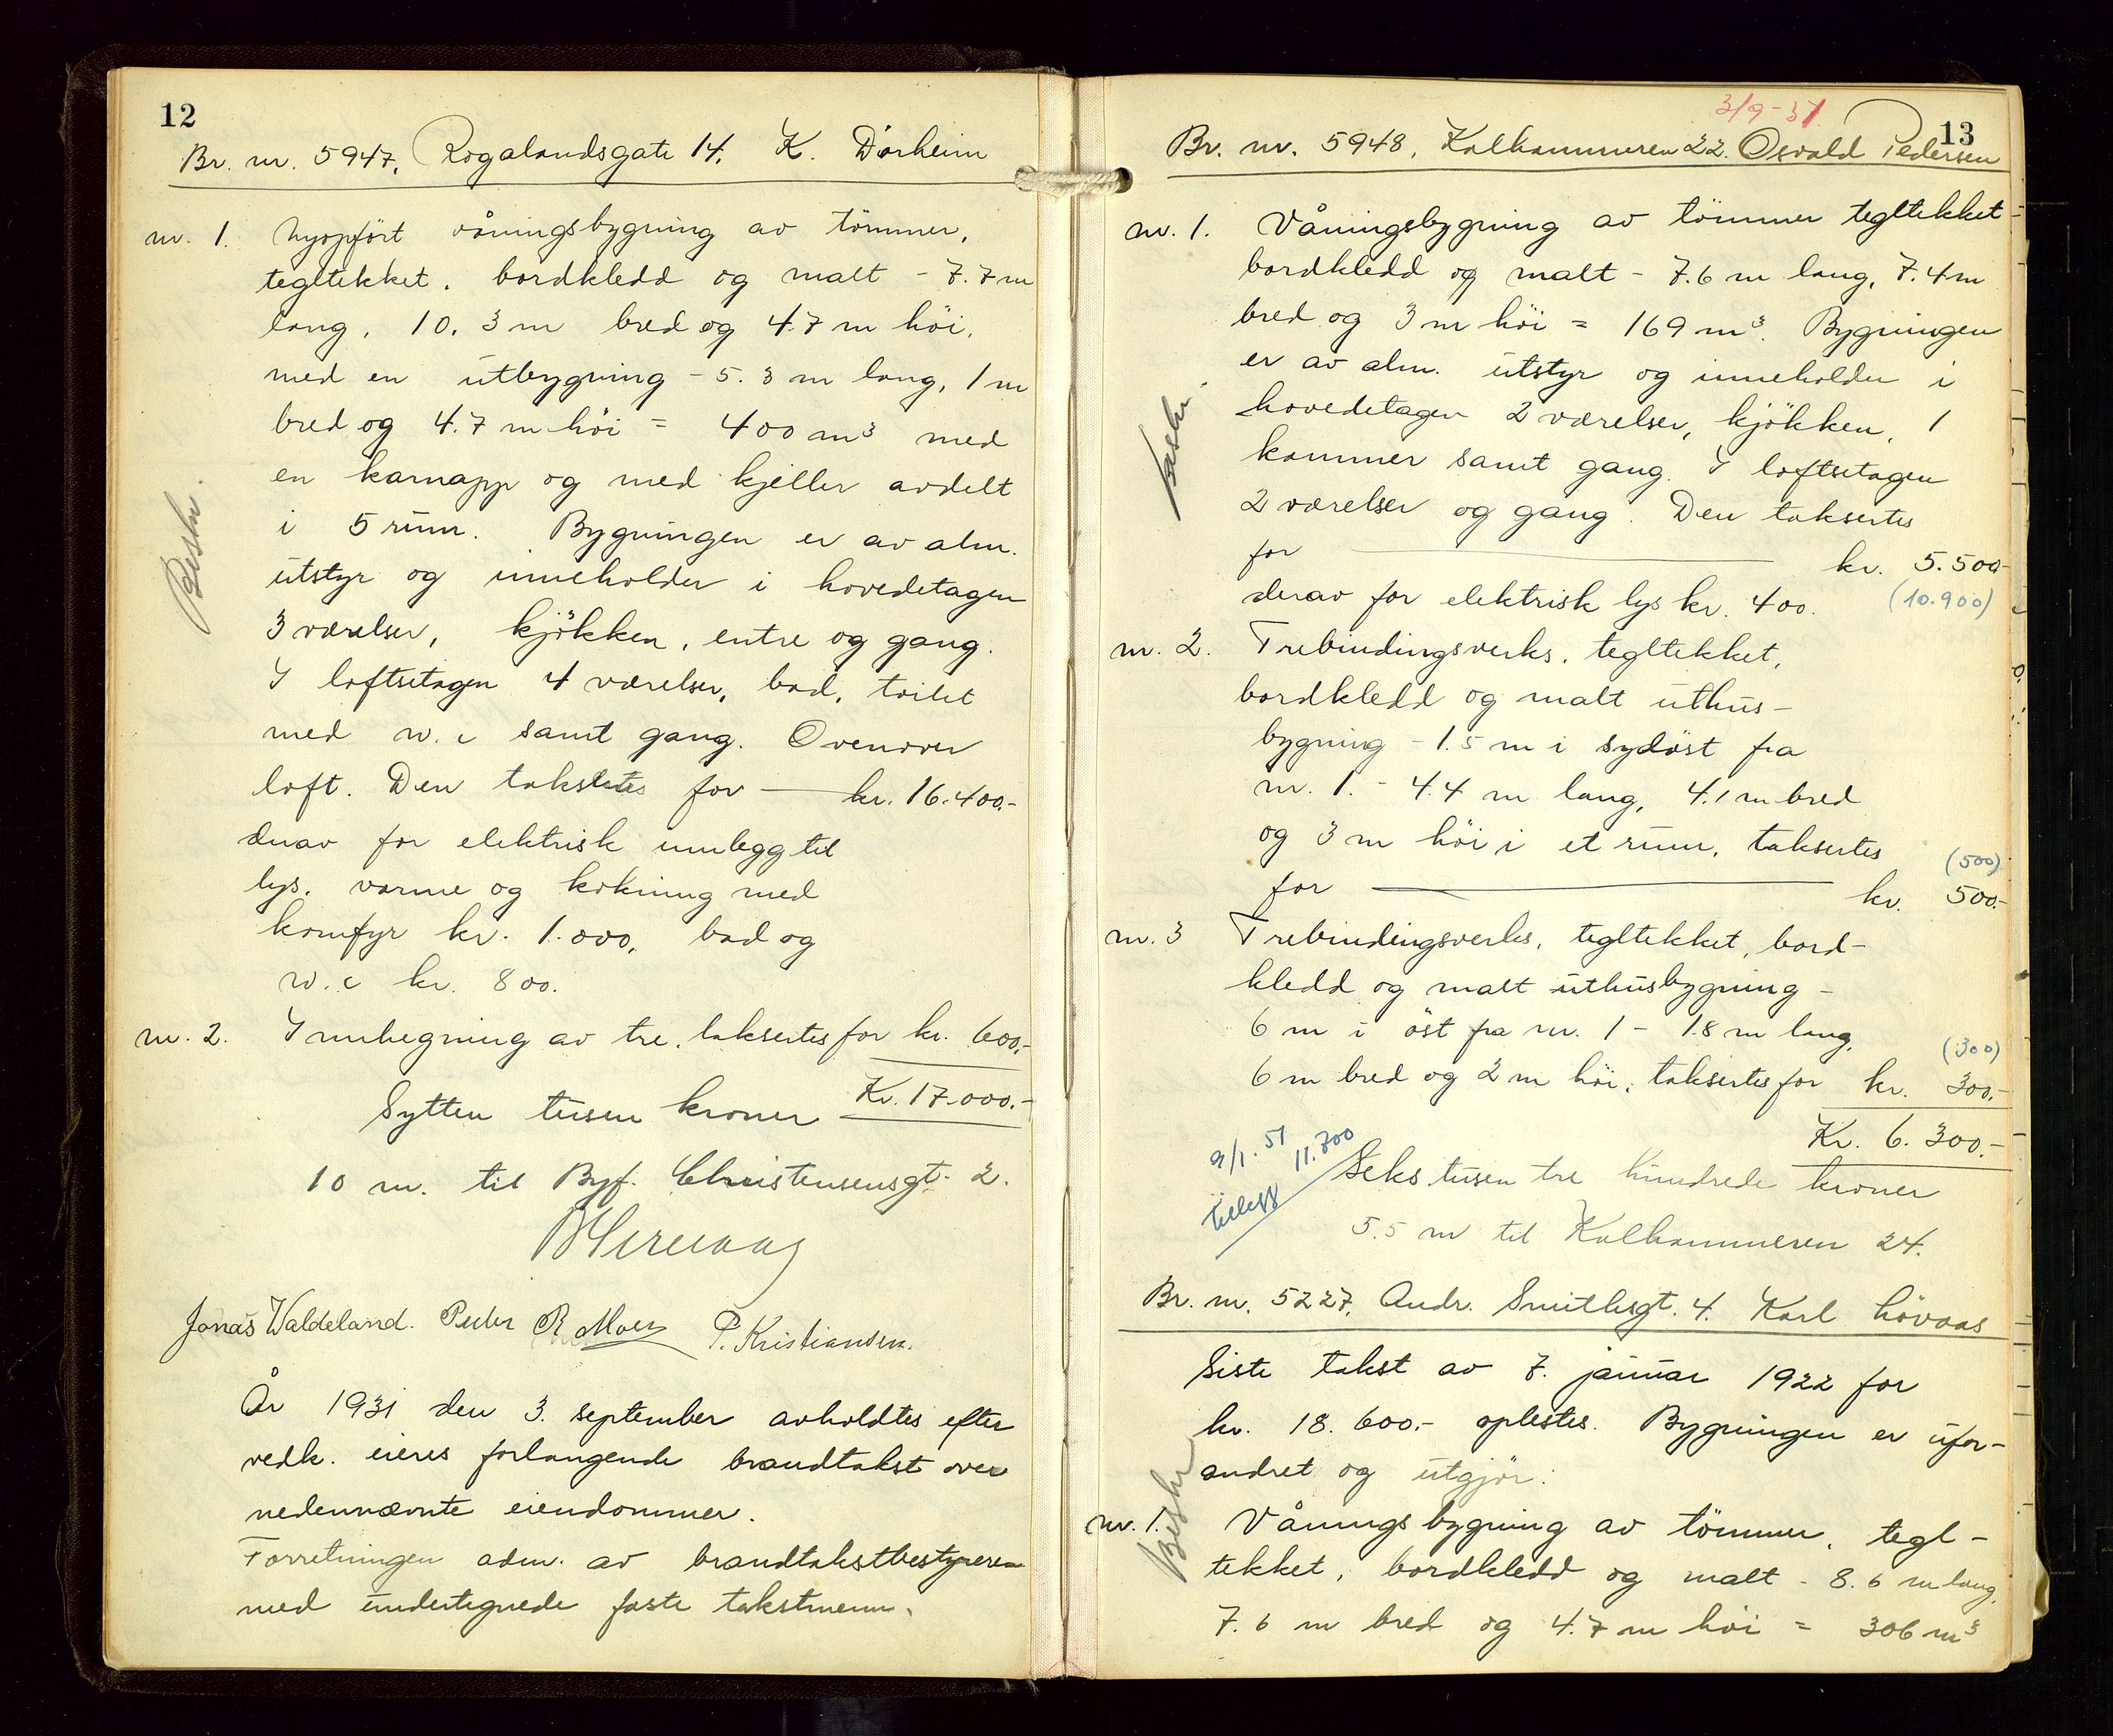 12
Br. nr. 5947, Rogalandsgate 14. K. Dårheim
nr. 1. Nyopført våningsbygning av tømmer,
tegltekket, bordkledd og malt - 7.7 m
lang, 10.3 m bred og 4.7 m höi,
med en utbygning - 5.3 m lang, 1 m
bred og 4.7 m höi = 400 m³ med
en karnapp og med kjeller avdelt
i 5 rum. Bygningen er av alm.
utstyr og inneholder i hovedetagen
3 værelser, kjökken, entre og gang.
I loftsetagen 4 værelser, bad, toilet
med w.c samt gang. Ovenover
loft. Den takstes for — kr. 16.400.-
derav for elektrisk innlegg til
lys, varme og kokning med
komfyr kr. 1.000, bad og
w.c kr. 800.
nr. 2. Innhegning av tre, taksertes for kr. 600.-
Sytten tusen kroner Kr. 17.000.-
10 m. til Byf. Christensensgt. 2.
Jonas Waldeland. Peder R Moen P. Kristiansen.
År 1931 den 3. september avholdtes efter
vedk. eieres forlangende brandtakst over
nedennævnte eiendommer.
Forretningen adm. av brandtakstbestyreren
med undertegnede faste takstmenn.
Beskr.
3/9-31
13
Br. nr. 5948, Kalhammeren 22. Osvald Pedersen
nr. 1. Våningsbygning av tömmer tegltekket-
bordkledd og malt - 7.6 m lang, 7.4 m
bred og 3 m höi = 169 m³. Bygningen
er av alm. utstyr og inneholder i
hovedetagen 2 værelser, kjökken, 1
kammer samt gang. I loftsetagen
2 værelser og gang. Den taksertes
for — kr. 5.500-
derav for elektrisk lys kr. 400. (10.900)
nr. 2. Trebindingsverks, tegltekket,
bordkledd og malt uthus-
bygning - 1.5 m i sydöst fra
nr. 1. - 4.4 m lang, 4.1 m bred
og 3 m höi i et rum, taksertes (500)
for — kr. 500.-
nr. 3 Trebindingsverks, tegltekket, bord-
kledd og malt uthusbygning -
6 m i öst fra nr. 1 - 1.8 m lang, (300)
6 m bred og 2 m höi, taksertes for kr. 300.-
Kr. 6.300.-
9/1.51 11.700
tillegg
Seks tusen tre hundrede kroner
5.5 m til Kalhammeren 24.
Beskr.
Br. nr. 5227, Andr. Smithsgt. 4. Karl Hövaas
Siste takst av 7. januar 1922 for
kr. 18.600.- oplestes. Bygningen er ufor-
andret og utgjör:
nr. 1. Våningsbygning av tömmer, tegl-
tekket, bordkledd og malt - 8.6 m lang,
7.6 m bred og 4.7 m höi = 306 m³
Beskr